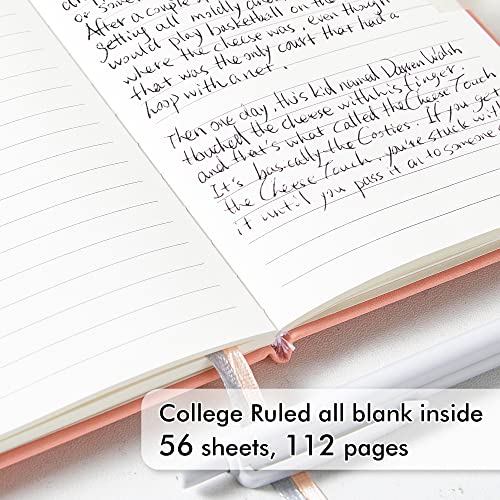 After a couple
or Some
getting all moldly and
would play basketball on the
where the cheese was, even though
that was the only court that had a
hoop with a net.
Then one day, this kid named Darren Walsh
thuched the cheese with his finger.
and that's what called the Cheese Touch
It's basically the Cooties. If you get
the Cheese Touch, you're stuck with
it until you pass it on to someone
College Ruled all blank inside
56 sheets, 112 pages